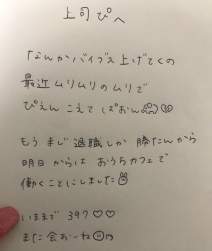 上司ぴへ
「なんかバイブス上げてくの
最近ムリムリのムリで
ぴえんこえてぱおん
もうまじ退職しか勝たんから
明日からはおうちカフェで
働くことにしました
いままで 39?♡♡
また会おーね